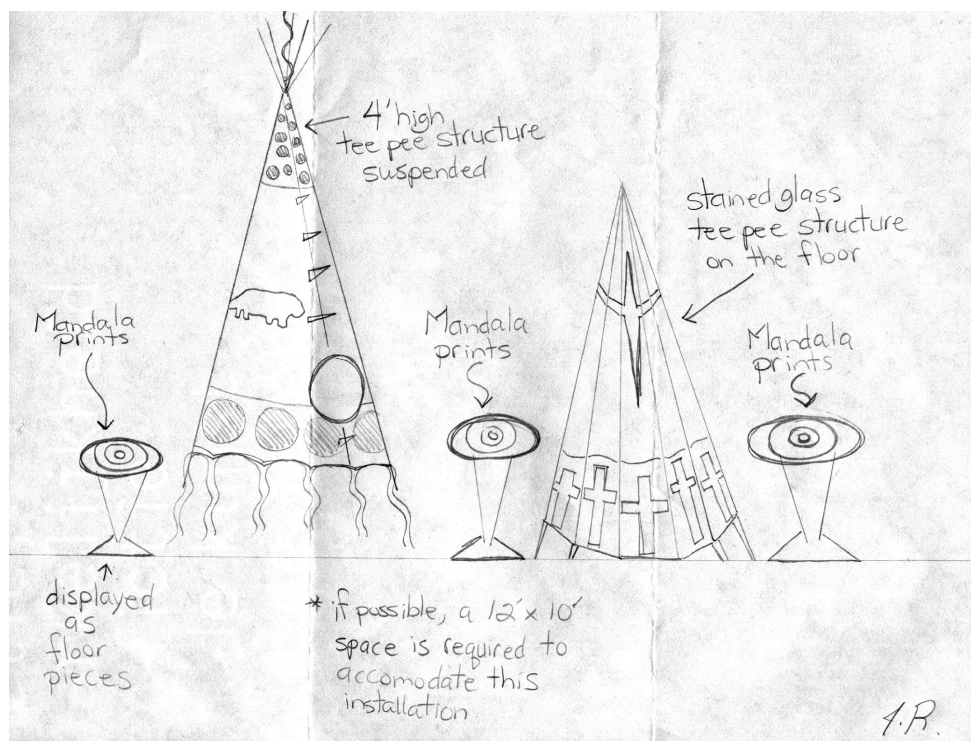 4' high
tee pee structure
suspended
stained glass
tee pee structure
on the floor
Mandala
prints
Mandala
prints
Mandala
prints
displayed
as
floor
pieces
* if possible, a 12' x 10'
space is required to
accomodate this
installation
J.R.